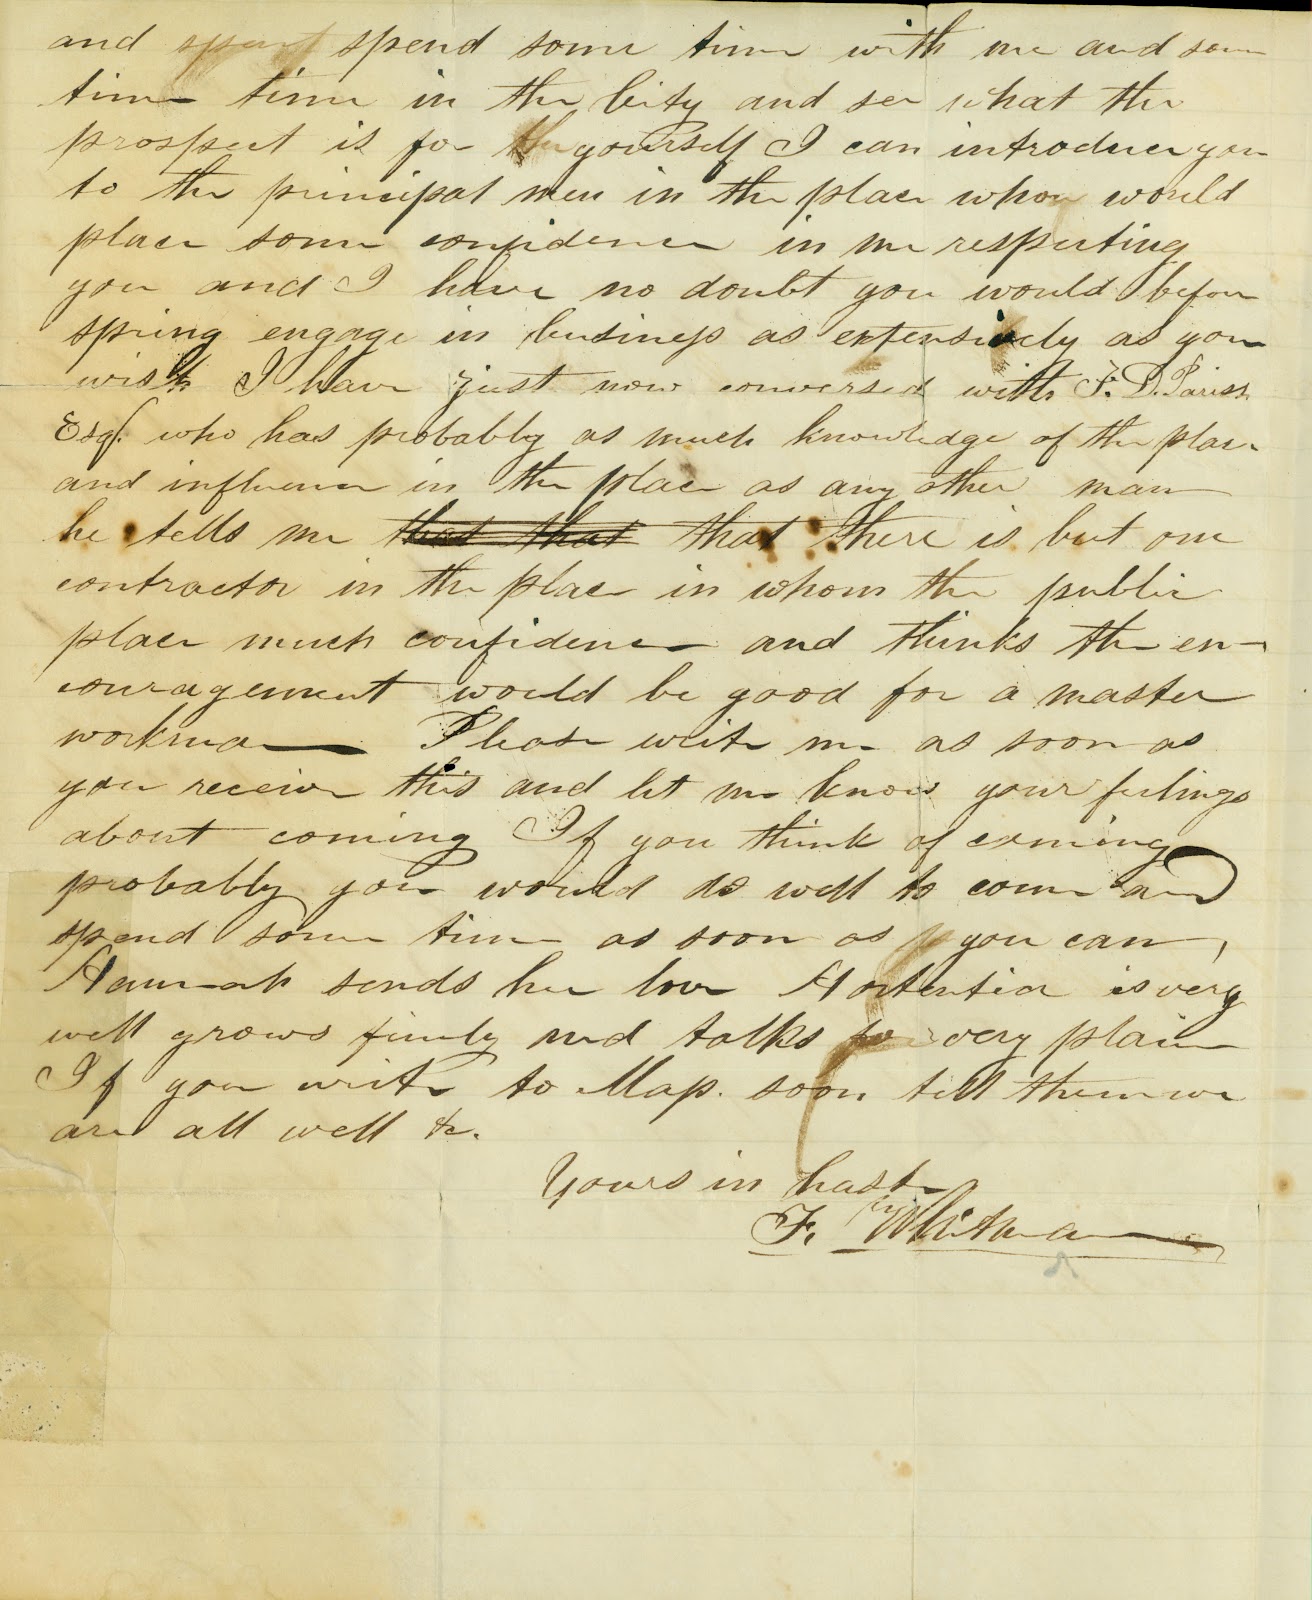 and spent spend some time with me and some
time time in the City and see what the
prospect is for the yourself I can introduce you
to the principal men in the place whom would
place some confidence in me respecting
you and I have no doubt you would before
spring engage in business as extensively as you
wish I have just now conversed with F. D. Parish
Esqr. who has probably as much knowledge of the place
and influence in the place as any other man
he tells me that that that there is but one
contractor in the place in whom the public
place much confidence and thinks the en-
couragement would be good for a master
workman Please write me as soon as
you receive this and let me know your feelings
about coming If you think of coming
probably you would do well to come and
spend some time as soon as you can,
Hannah sends her love Hortentia is very
well grows finely and talks very plain
If you write to Map. soon tell them we
are all well &c.
Yours in haste
F. Whitman